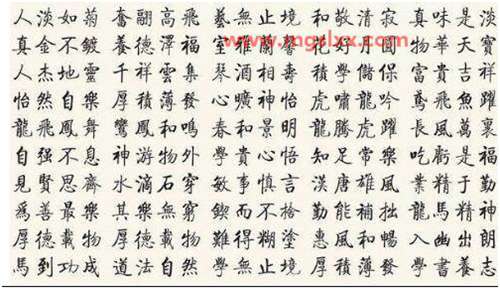 人淡如菊 奮翮高飛 藝無止境 和敬清寂 真味是淡
真金不鍍 養德澤福 室雅蘭馨 花好月圓 物華天寶
人杰地靈 千祥雲集 琴 酒 相 積學儲 富貴吉祥
怡然自樂 厚積薄發 心曠神怡 虎嘯龍吟 鳶飛魚躍
龍飛鳳舞 鸞鳳和鳴 春和景明 龍騰虎躍 長風萬裏
自强不息 神游物外 學貴心悟 知足常樂 吃虧是福
見賢思齊 水滴石穿 敏事慎言 漢唐雄風 業精于勤
爲善最樂 其樂無窮 鍥而不捨 勤能補拙 龍馬精神
厚德載物 厚德載物 難得糊塗 惠風和暢 入幽出朗
馬到功成 道法自然 學無止境 厚積薄發 學書養志